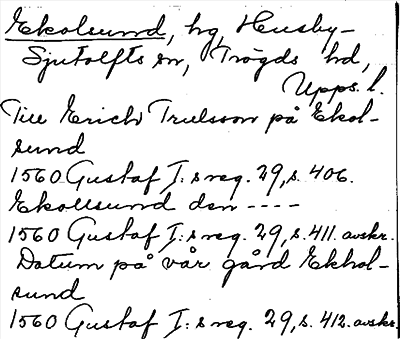 Ekolsund, hg, Husby-
Sjutolfts sn, Trögds hd,
Upps. l.
Till Erich Trulsson på Ekol-
sund
1560 Gustaf I:s reg. 29, s. 406.
Ekollsund den ----
1560 Gustaf I:s reg. 29, s. 411. avskr.
Datum på vår gård Ekhol-
sund
1560 Gustaf I:s reg. 29, s. 412. avskr.